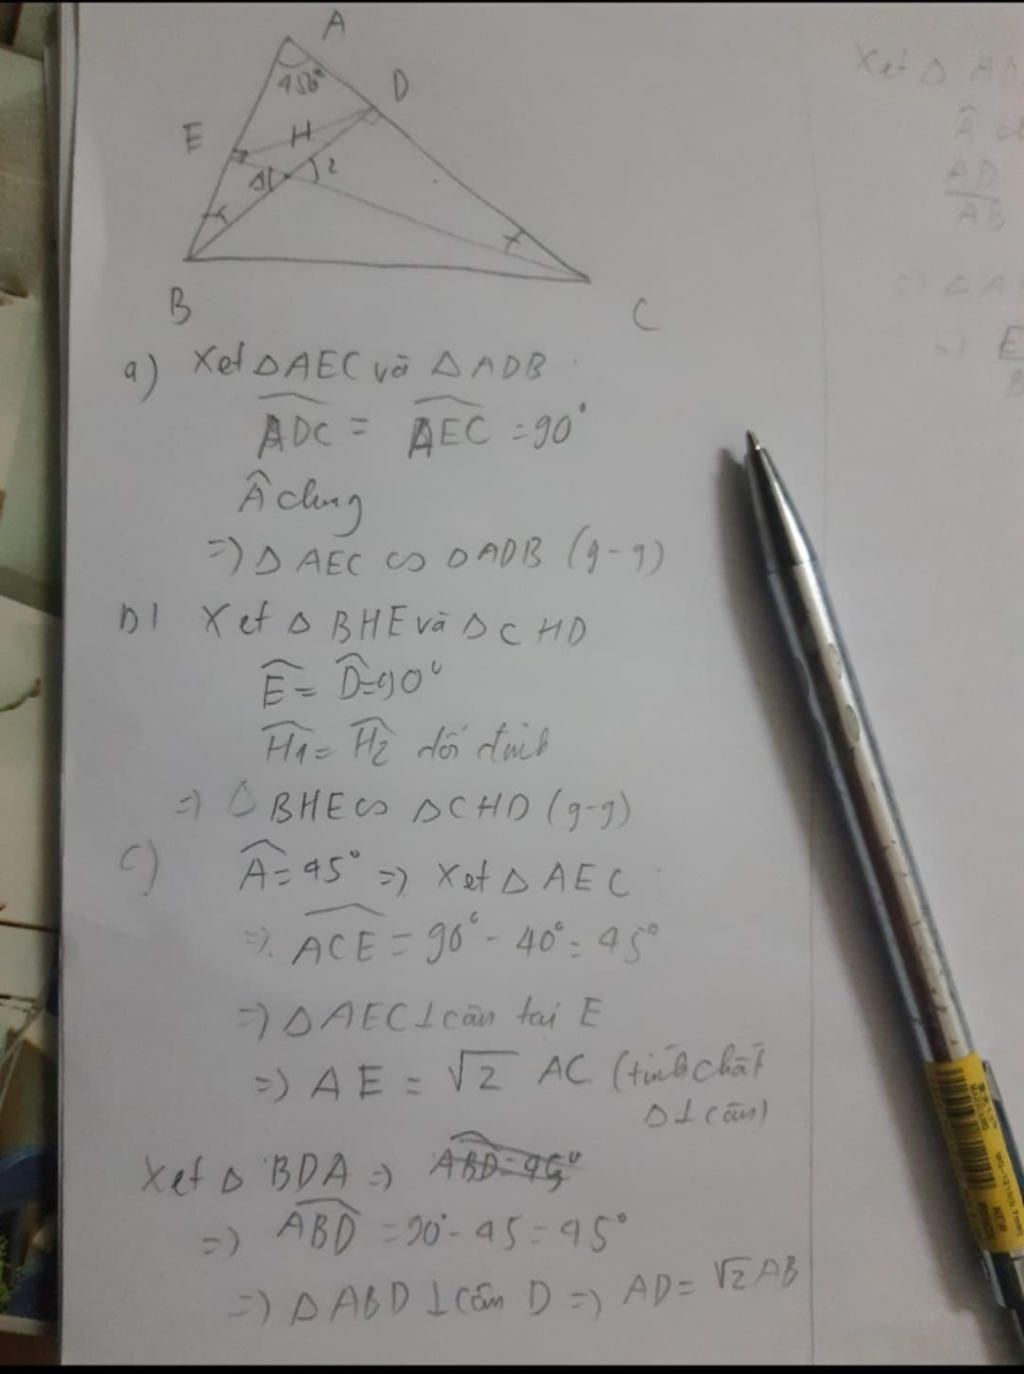 A
45°
D
E
H
1
2
B
C
a) Xet △AEC và △ADB
ADC = AEC = 90°
Â chung
=> △AEC ∽ △ADB (g-g)
b) Xet △BHE và △CHD
Ê = D̂ = 90°
H1 = H2 đối đỉnh
=> △BHE ∽ △CHD (g-g)
c) Â = 45° => Xet △AEC
=> ACE = 90° - 40° = 45°
=> △AEC ⊥ cân tại E
=> AE = √2 AC (tính chất
△ ⊥ cân)
Xet △BDA => ABD = 45°
=> ABD = 90° - 45 = 45°
=> △ABD ⊥ cân D => AD = √2 AB
Xet △ AD
Â
AD
AB
=> △A
=> E
B